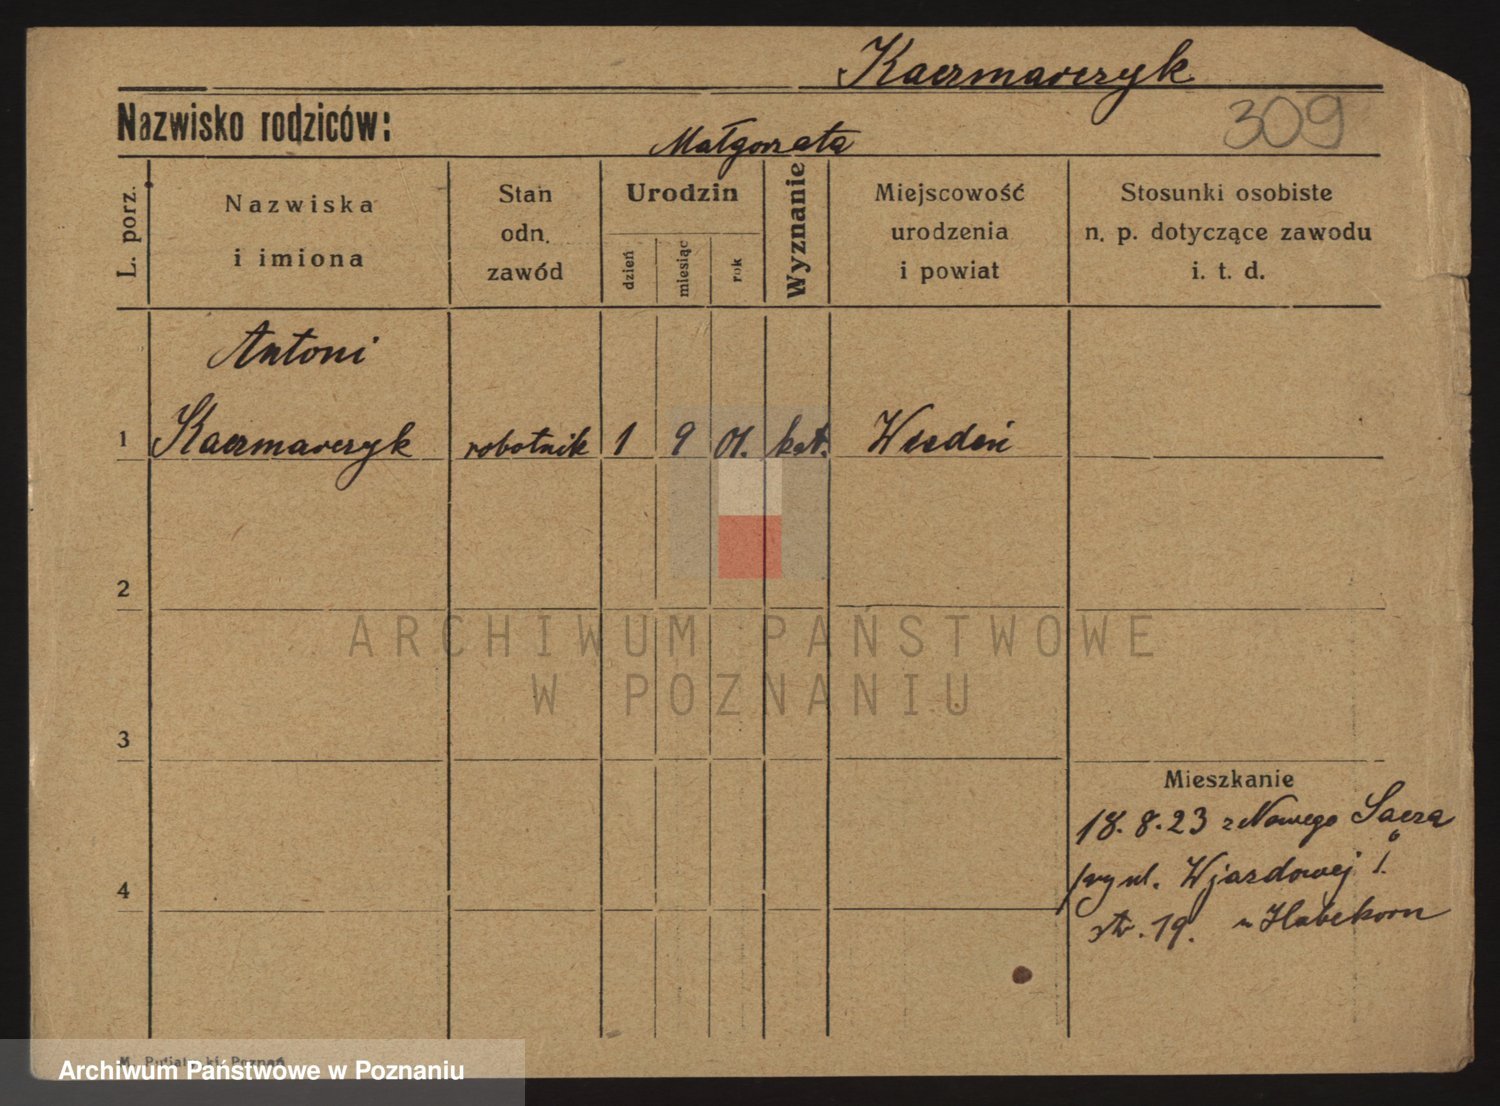 Kaczmarczyk
Nazwisko rodziców:
309
Małgorzata
L. porz.
Nazwiska
i imiona
Stan
odn.
zawód
Urodzin
dzień
miesiąc
rok
Wyznanie
Miejscowość
urodzenia
i powiat
Stosunki osobiste
n. p. dotyczące zawodu
i. t. d.
Antoni
1 Kaczmarczyk robotnik 1 9 01. kat. Wiedeń
2
ARCHIWUM PAŃSTWOWE
W POZNANIU
3
Mieszkanie
18.8.23 z Nowego Sącza
przy ul. Wjazdowej 1.
4
str. 19. u Habekorn
M. Poznań
Archiwum Państwowe w Poznaniu